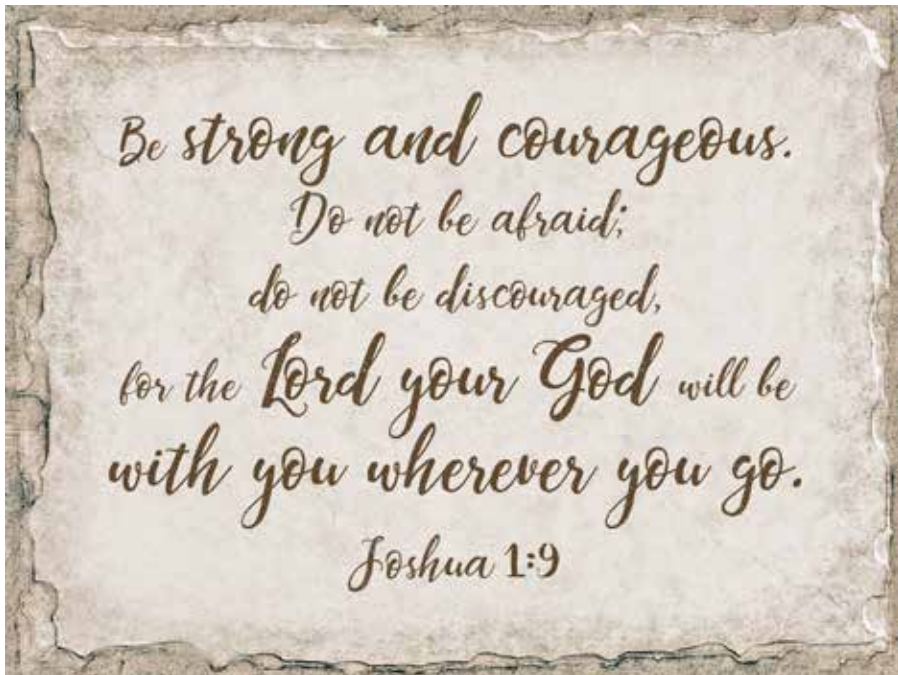 Be strong and courageous.
Do not be afraid;
do not be discouraged,
for the Lord your God will be
with you wherever you go.
Joshua 1:9